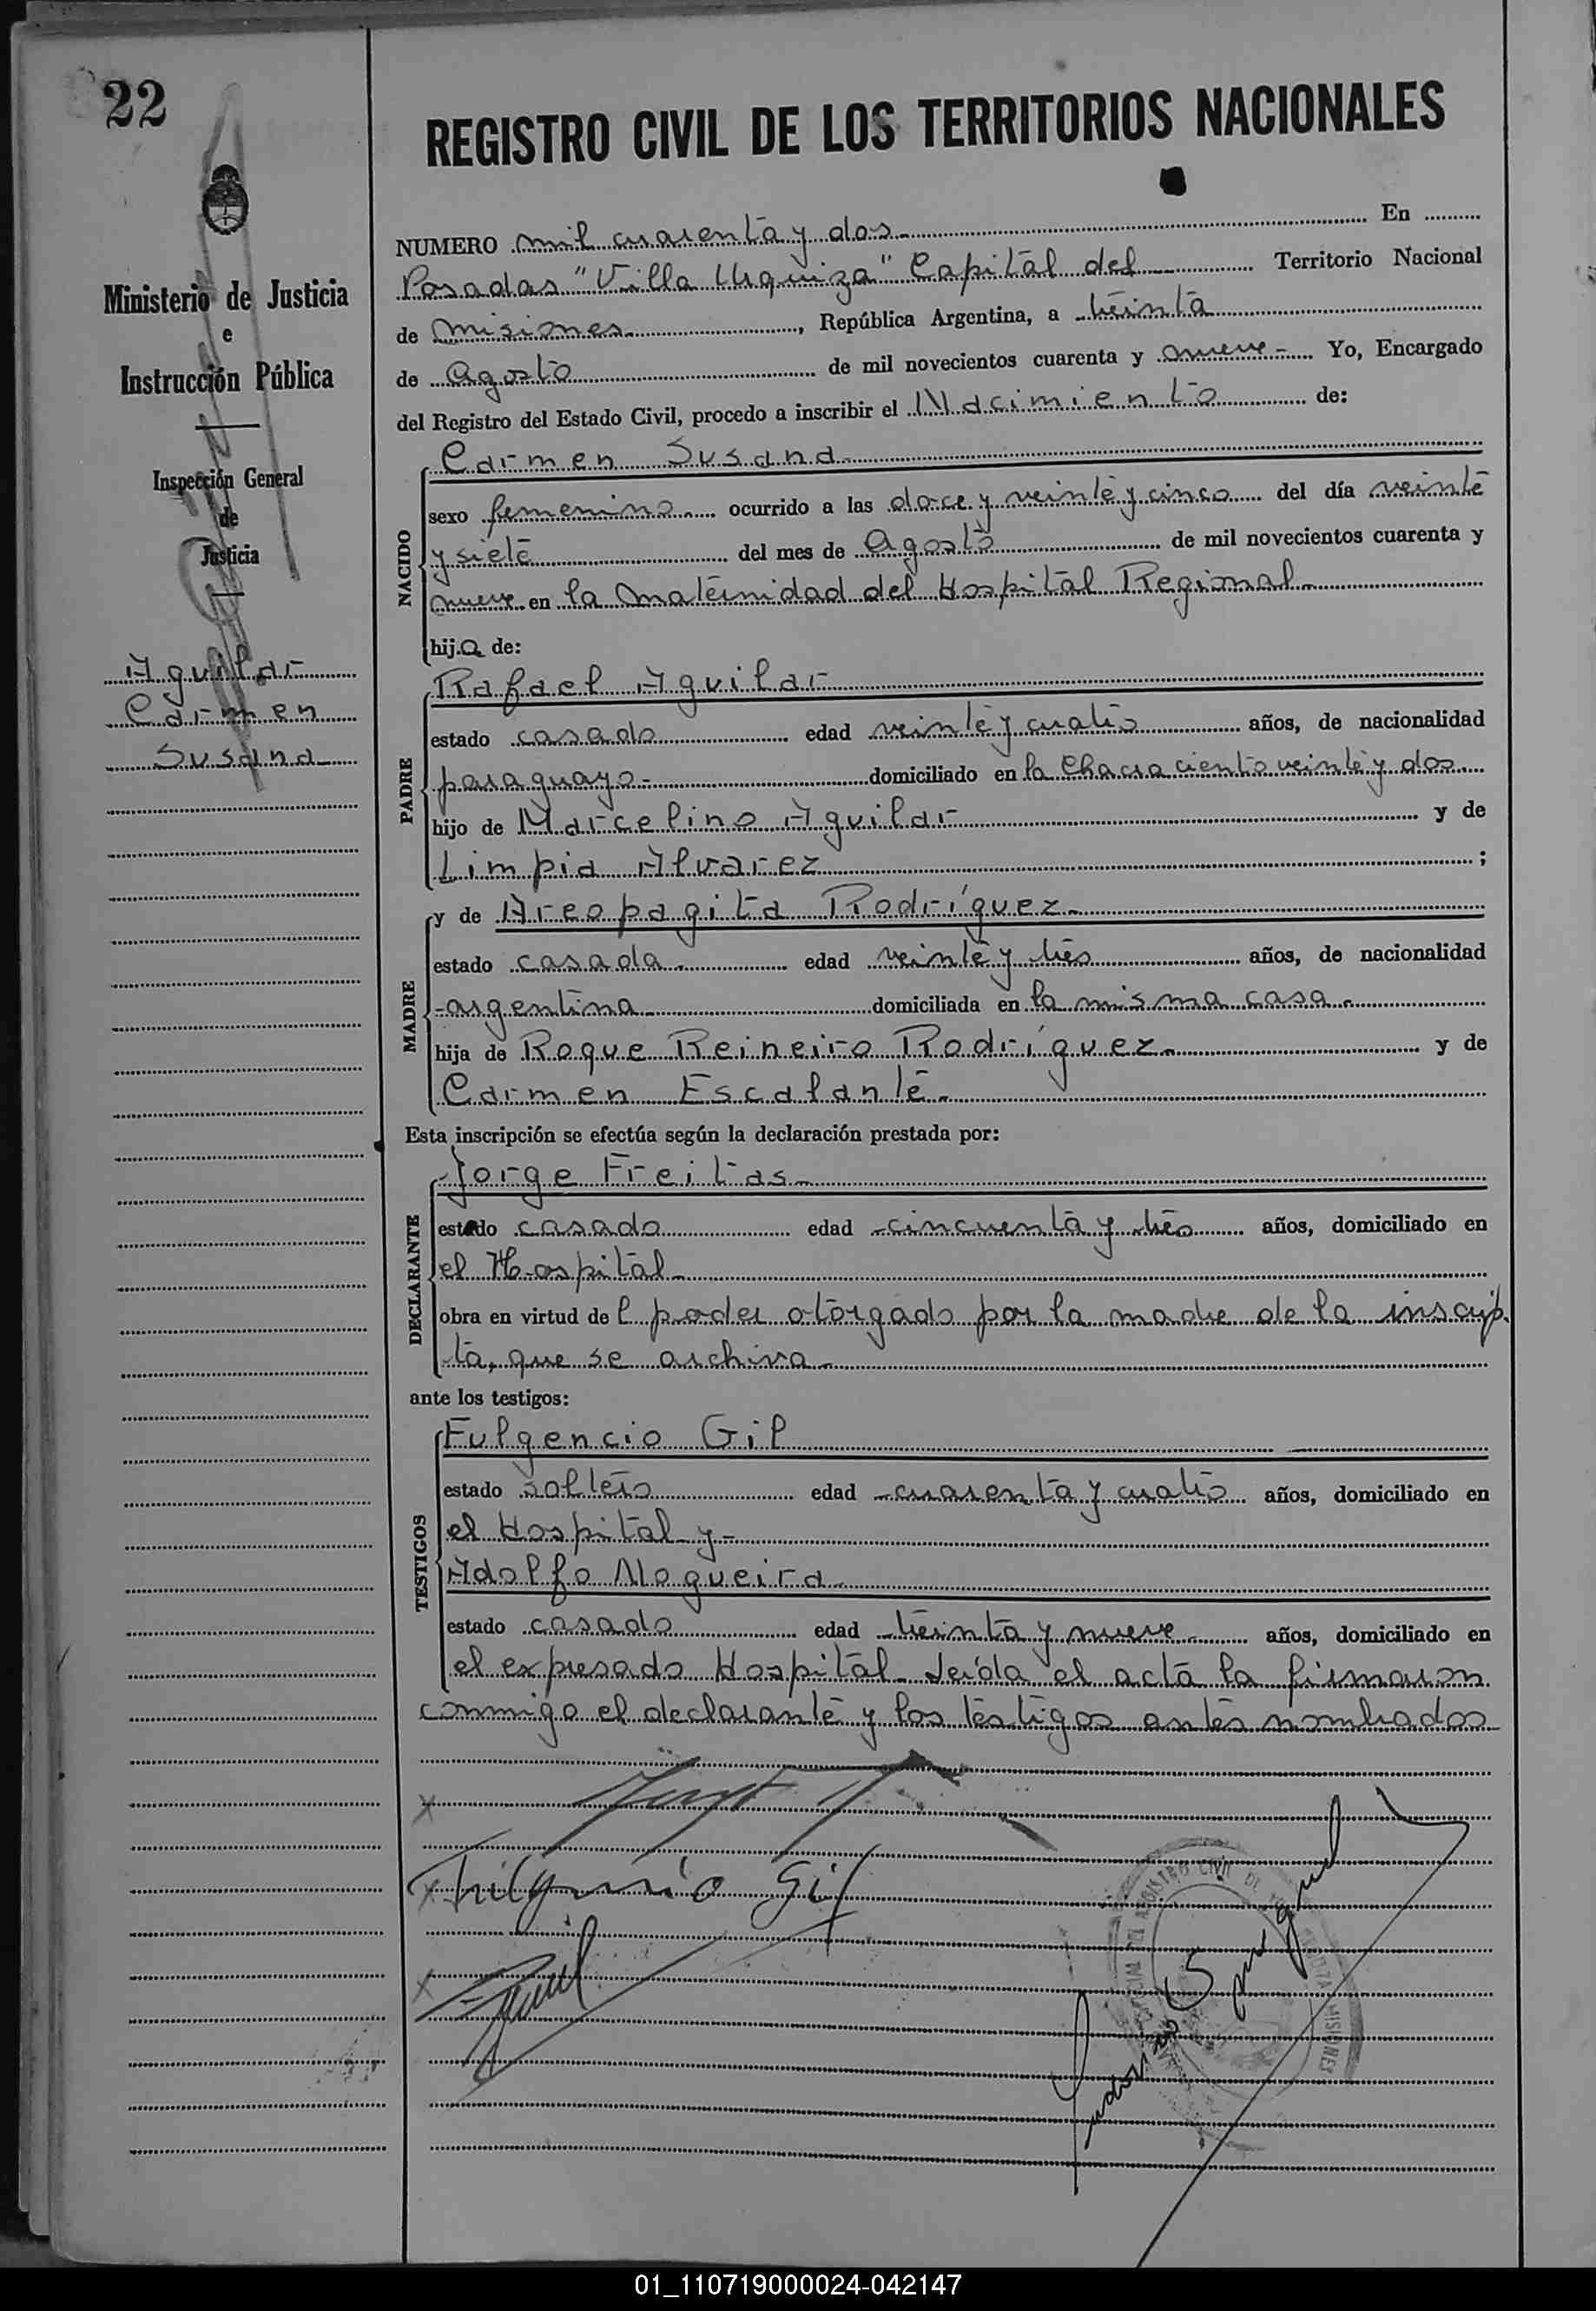 22
REGISTRO CIVIL DE LOS TERRITORIOS NACIONALES
Ministerio de Justicia
e
Instrucción Pública
Inspección General
de
Justicia
Aguilar
Carmen
Susana
NUMERO mil cuarenta y dos En
Posadas "Villa Urquiza" Capital del Territorio Nacional
de Misiones, República Argentina, a treinta
de Agosto de mil novecientos cuarenta y nueve Yo, Encargado
del Registro del Estado Civil, procedo a inscribir el Nacimiento de:
NACIDO
Carmen Susana
sexo femenino ocurrido a las doce y veinte y cinco del día veinte
y siete del mes de Agosto de mil novecientos cuarenta y
nueve en la Maternidad del Hospital Regional
hija de:
PADRE
Rafael Aguilar
estado casado edad veinte y cuatro años, de nacionalidad
paraguayo domiciliado en la Chacra ciento veinte y dos
hijo de Marcelino Aguilar y de
Limpia Alvarez ;
MADRE
y de Areopagita Rodríguez
estado casada edad veinte y tres años, de nacionalidad
argentina domiciliada en la misma casa
hija de Roque Reineiro Rodríguez y de
Carmen Escalante
Esta inscripción se efectúa según la declaración prestada por:
DECLARANTE
Jorge Freitas
estado casado edad cincuenta y tres años, domiciliado en
el Hospital
obra en virtud del poder otorgado por la madre de la inscrip-
ta, que se archiva
ante los testigos:
TESTIGOS
Fulgencio Gil
estado soltero edad cuarenta y cuatro años, domiciliado en
el Hospital y
Adolfo Nogueira
estado casado edad treinta y nueve años, domiciliado en
el expresado Hospital Leída el acta la firmaron
conmigo el declarante y los testigos antes nombrados
Fulgencio Gil
REGISTRO CIVIL DE
MISIONES
01_110719000024-042147